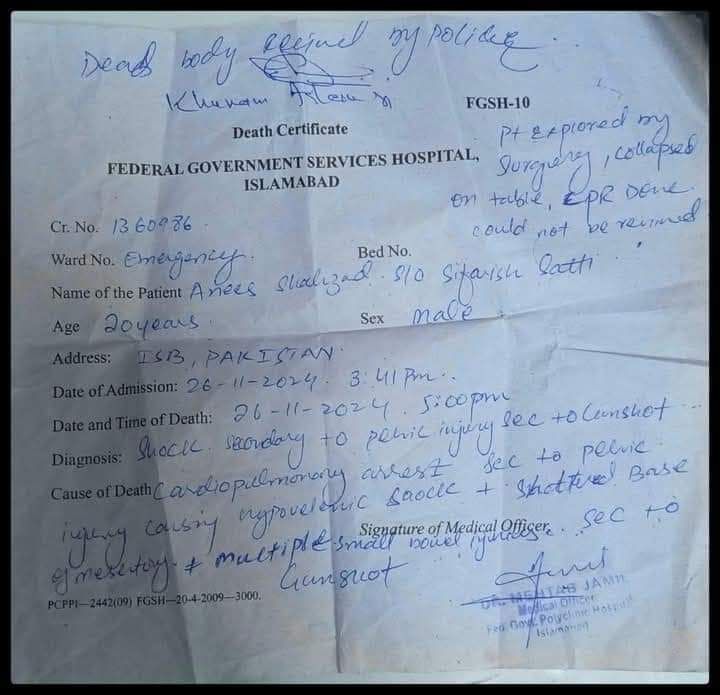 Dead body received by police
Khuram
FGSH-10
Death Certificate
FEDERAL GOVERNMENT SERVICES HOSPITAL,
ISLAMABAD
Pt Explored by
Surgery, collapsed
on table, CPR Done
could not be revived
Cr. No. 1360986
Ward No. Emergency.
Bed No.
Name of the Patient Anees Shahzad S/O Sifarish Satti
Age 20 years
Sex male
Address: ISB, PAKISTAN.
Date of Admission: 26-11-2024. 3:41 Pm.
Date and Time of Death: 26-11-2024. 5:00 pm
Diagnosis: Shock secondary to pelvic injury sec to Gunshot
Cause of Death Cardiopulmonary arrest sec to pelvic
injury causing hypovolemic shock + shattered Base
of mesentery + multiple small bowel injuries. sec to
Gunshot
Signature of Medical Officer
DR. MEHTAB JAMIL
Medical Officer
Fed. Govt. Polyclinic Hospital
Islamabad
PCPPI—2442(09) FGSH—20-4-2009—3000.